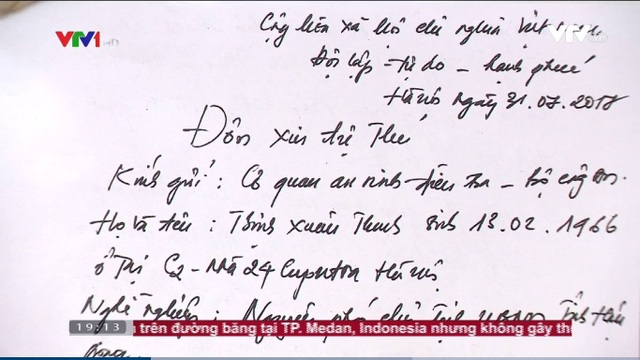 VTV1 HD
VTV
Cộng hòa xã hội chủ nghĩa Việt
Độc lập - tự do - hạnh phúc
Hà nội ngày 31.07.2017
Đơn xin tự thú
Kính gửi : Cơ quan an ninh điều tra - Bộ công an.
Họ và tên : Trịnh Xuân Thanh sinh 13.02.1966
ở tại C2 - nhà 24 Ciputra Hà nội
Nghề nghiệp : Nguyên phó chủ tịch UBND tỉnh Hậu
19:13 trên đường băng tại TP. Medan, Indonesia nhưng không gây thi